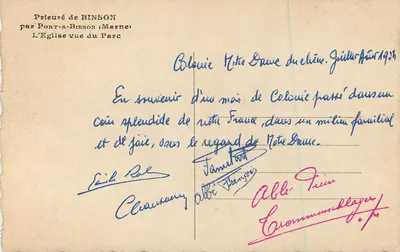 Prieuré de BINSON
par PORT-A-BINSON (Marne)
L'Eglise vue du Parc
Colonie Notre Dame du chêne. Juillet Août 1954
En souvenir d'un mois de Colonie passé dans un
coin splendide de notre France, dans un milieu familial
et de joie, sous le regard de Notre Dame.
Abbé
Abbé Pierre